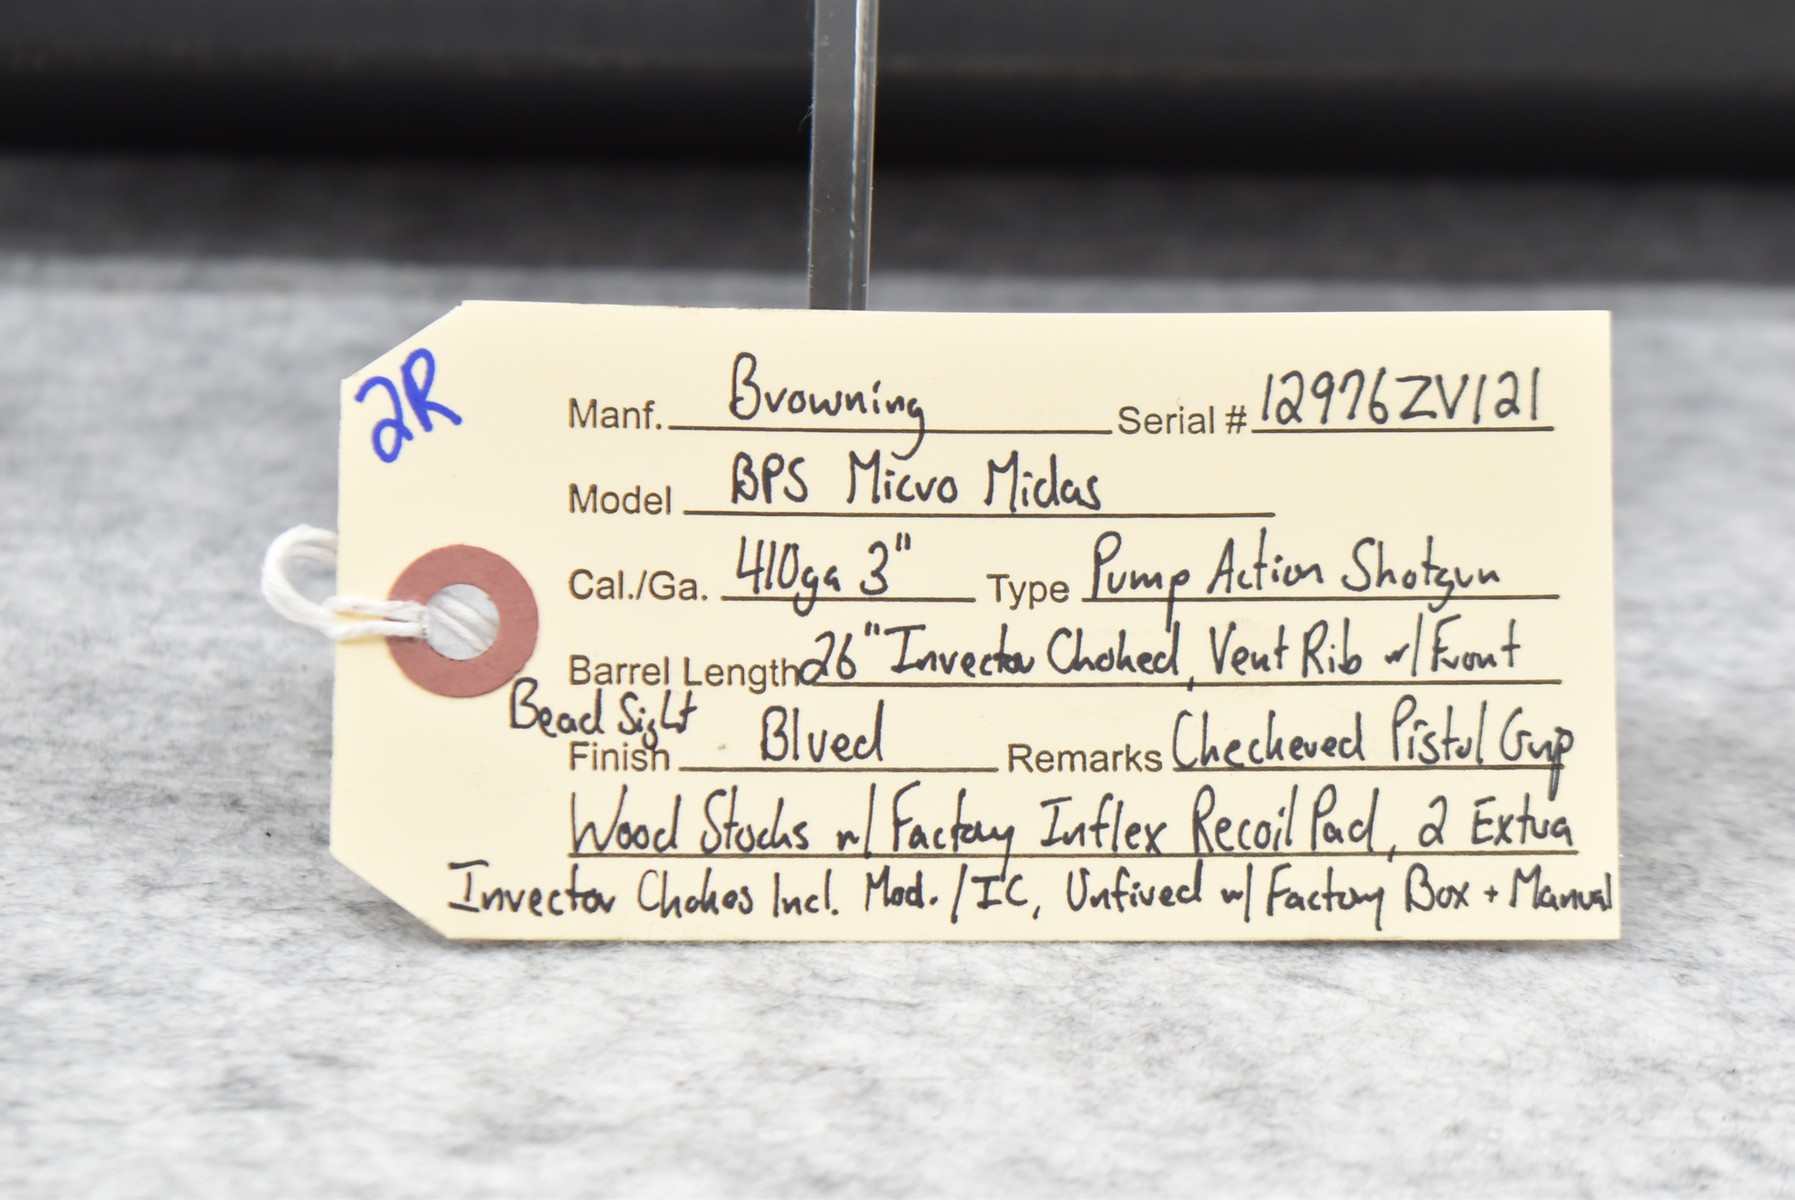 2R
Manf. Browning Serial # 12976ZV121
Model BPS Micro Midas
Cal./Ga. 410ga 3" Type Pump Action Shotgun
Barrel Length 26" Invector Choked, Vent Rib w/ Front
Bead Sight
Finish Blued Remarks Checkered Pistol Grip
Wood Stocks w/ Factory Inflex Recoil Pad, 2 Extra
Invector Chokes Incl. Mod./IC, Unfired w/ Factory Box + Manual